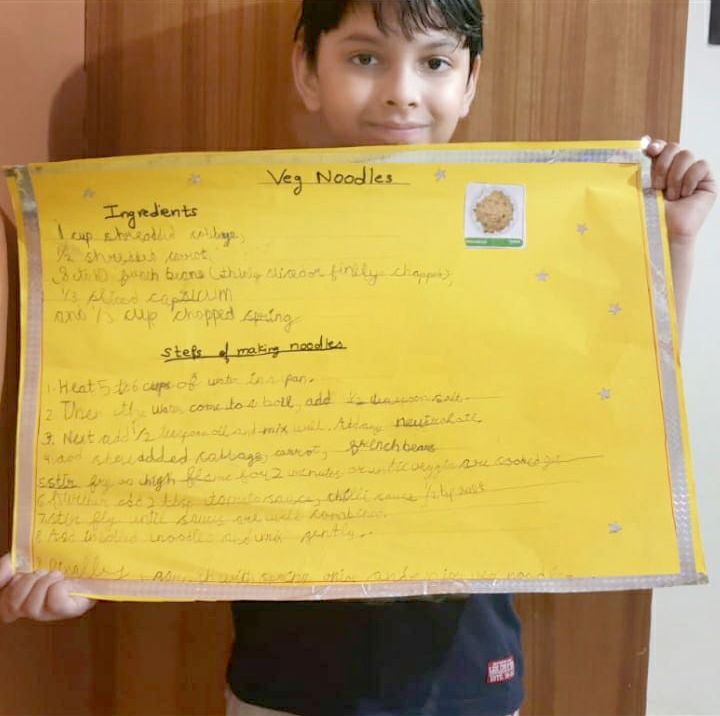 Veg Noodles
Ingredients
1 cup shredded cabbage,
1/2 shredded carrot,
8 to 10 french beans (thinly sliced or finely chopped),
1/3 sliced capsicum
and 1/3 cup chopped spring
Steps of making noodles
1. Heat 5 to 6 cups of water in a pan.
2. Then the water come to a boil, add 1/2 teaspoon salt.
3. Next add 1/2 teaspoon oil and mix well. Adding
4. add shredded cabbage, carrot, french beans
5. stir fry on high flame for 2 minutes or until veggies are cooked
6. further add 2 tbsp tomato sauce, chilli sauce
7. stir fry until sauces are well combine.
8. Add boiled noodles and mix gently..
9. Finally, with spring onion and noodles